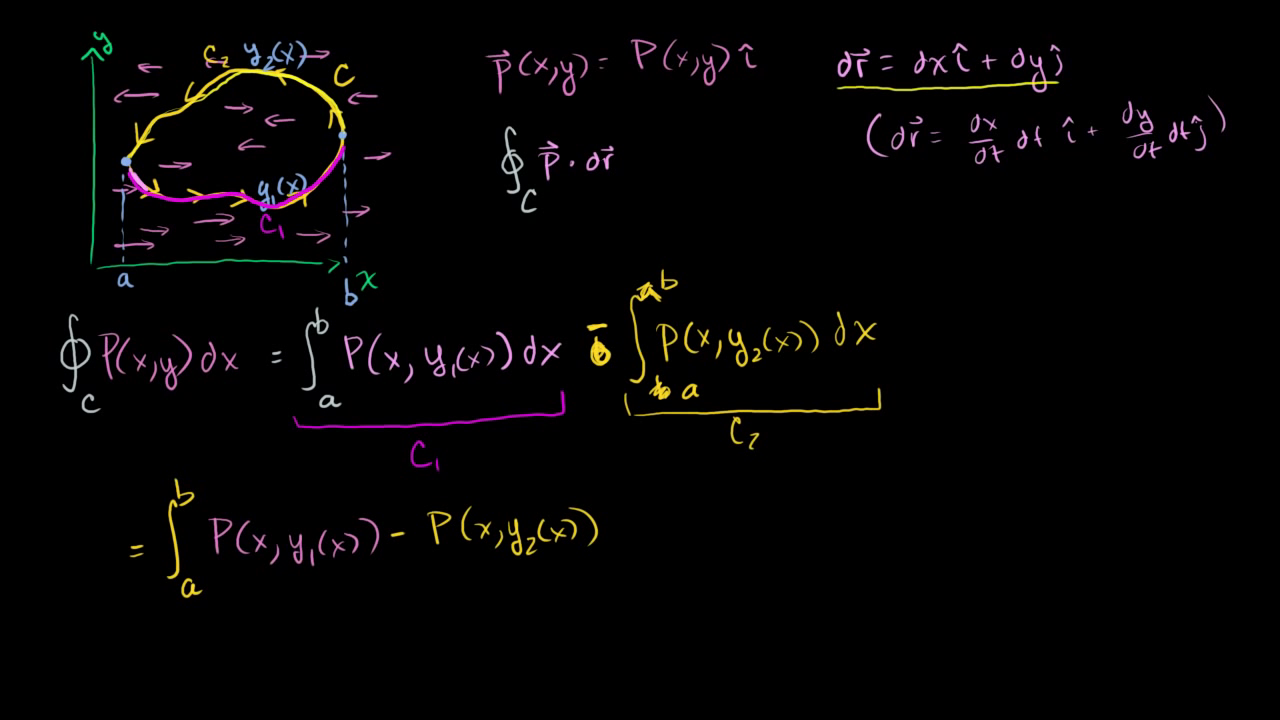 y
C₂ y₂(x)
C
y₁(x)
C₁
a
b
x
p⃗(x,y) = P(x,y) î
dr⃗ = dx î + dy ĵ
(dr⃗ = dx/dt dt î + dy/dt dt ĵ)
∮_C p⃗ · dr⃗
∮_C P(x,y) dx = ∫_a^b P(x, y₁(x)) dx - ∫_a^b P(x, y₂(x)) dx
C₁
C₂
= ∫_a^b P(x, y₁(x)) - P(x, y₂(x))